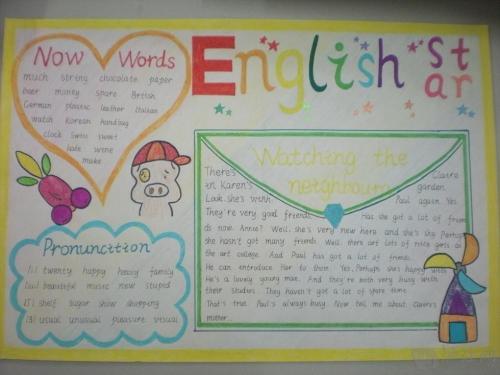 English Star
Now Words
much string chocolate paper
beer money spare British
German plastic leather Italian
watch Korean handbag
clock Swiss sweet
lots wine
make
Pronunction
/i/ twenty happy heavy family
/ju:/ beautiful music new stupid
/ʃ/ shelf sugar show shopping
/ʒ/ usual unusual pleasure visual
Watching the
neighbours
There's Claire
in Karen's garden.
Look she's with Paul again. Yes,
They're very good friends. Has she got a lot of frien
ds now. Anne? Well, she's very new here and she's shy. Perhaps
she hasn't got many friends. Well, there are lots of nice girls at
the art college. And Paul has got a lot of friends.
He can introduce her to them. Yes, Perhaps she's happy with
He's a lovely young man. And they're both very busy with
their studies. They haven't got a lot of spare time.
That's true. Paul's always busy. Now tell me about Claire's
mother...